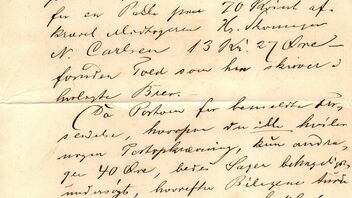 for en Pakke paa 70 Kvint af-
krævet Modtageren Hr. Skomager
N. Carlsen 13 Kr. 27 Øre
foruden Told som han skrev
Brev.
Da Portoen for bemeldte For-
sendelse, hvorpaa du ikke hviler
nogen Postopkrævning, kun andra-
ger 40 Øre, bedes Sagen behageligst
undersøgt, hvorefter Bilagene